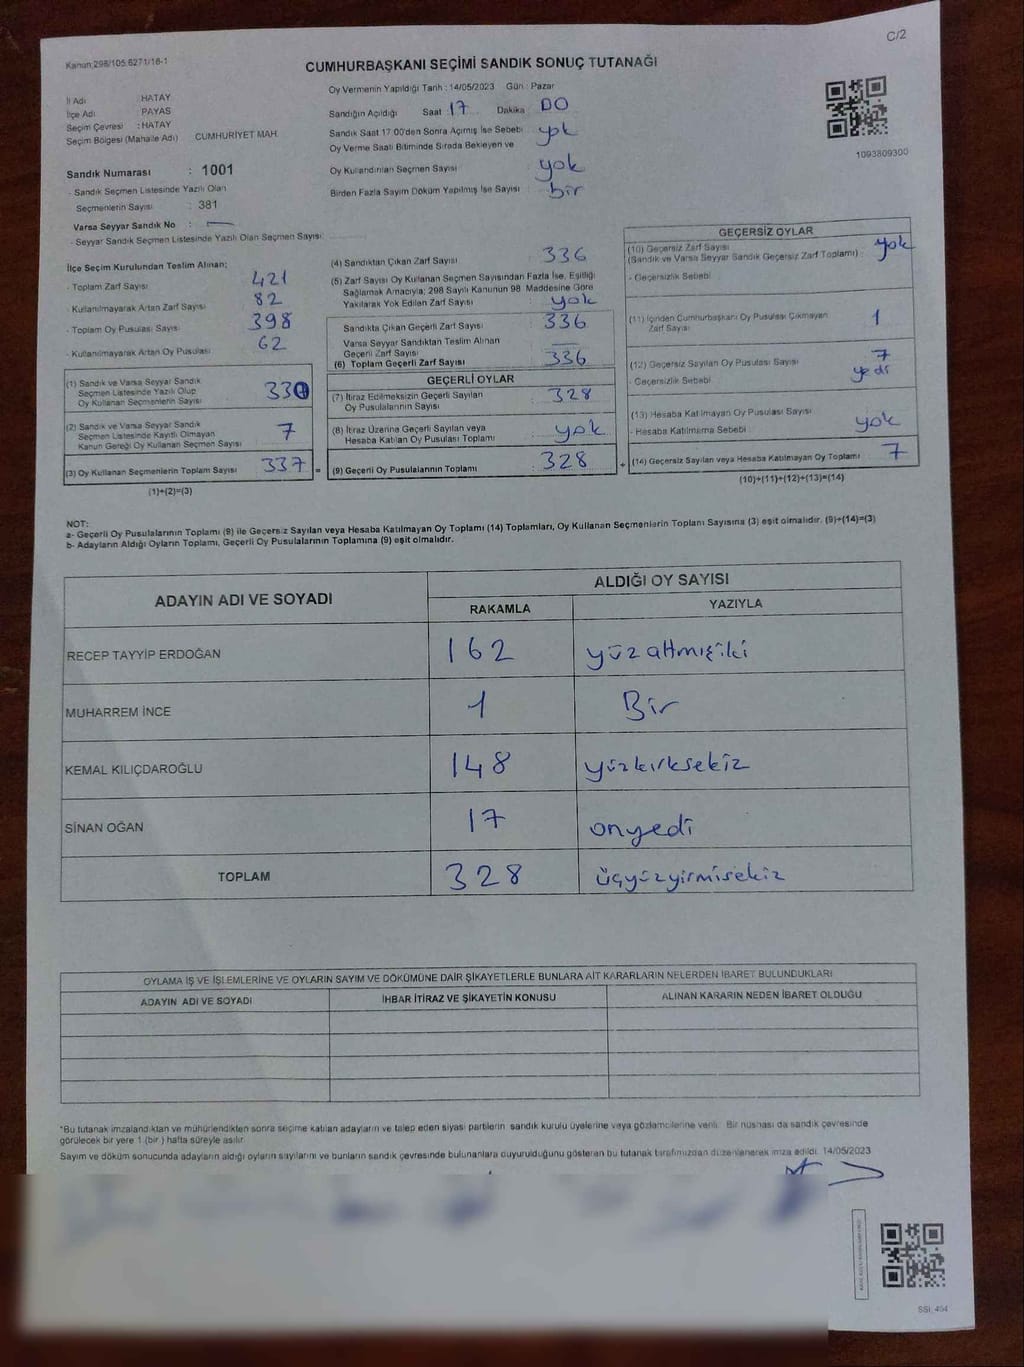 C/2
Kanun 298/105 6271/18-1
CUMHURBAŞKANI SEÇİMİ SANDIK SONUÇ TUTANAĞI
İl Adı HATAY
İlçe Adı PAYAS
Seçim Çevresi : HATAY
Seçim Bölgesi (Mahalle Adı) CUMHURİYET MAH.
Sandık Numarası : 1001
- Sandık Seçmen Listesinde Yazılı Olan
Seçmenlerin Sayısı : 381
Varsa Seyyar Sandık No : —
- Seyyar Sandık Seçmen Listesinde Yazılı Olan Seçmen Sayısı:
Oy Vermenin Yapıldığı Tarih : 14/05/2023 Gün : Pazar
Sandığın Açıldığı Saat 17 Dakika : 00
Sandık Saat 17 00'den Sonra Açımış İse Sebebi : yok
Oy Verme Saati Bitiminde Sırada Bekleyen ve
Oy Kullandırılan Seçmen Sayısı : yok
Birden Fazla Sayım Döküm Yapılmış İse Sayısı : bir
1093809300
İlçe Seçim Kurulundan Teslim Alınan;
- Toplam Zarf Sayısı : 421
- Kullanılmayarak Artan Zarf Sayısı : 82
- Toplam Oy Pusulası Sayısı : 398
- Kullanılmayarak Artan Oy Pusulası : 62
(1) Sandık ve Varsa Seyyar Sandık
Seçmen Listesinde Yazılı Olup
Oy Kullanan Seçmenlerin Sayısı : 330
(2) Sandık ve Varsa Seyyar Sandık
Seçmen Listesinde Kayıtlı Olmayan
Kanun Gereği Oy Kullanan Seçmen Sayısı : 7
(3) Oy Kullanan Seçmenlerin Toplam Sayısı : 337 =
(1)+(2)=(3)
(4) Sandıktan Çıkan Zarf Sayısı : 336
(5) Zarf Sayısı Oy Kullanan Seçmen Sayısından Fazla İse, Eşitliği
Sağlamak Amacıyla; 298 Sayılı Kanunun 98 Maddesine Göre
Yakılarak Yok Edilen Zarf Sayısı : yok
Sandıkta Çıkan Geçerli Zarf Sayısı : 336
Varsa Seyyar Sandıktan Teslim Alınan
Geçerli Zarf Sayısı : —
(6) Toplam Geçerli Zarf Sayısı : 336
GEÇERLİ OYLAR
(7) İtiraz Edilmeksizin Geçerli Sayılan
Oy Pusulalarının Sayısı : 328
(8) İtiraz Üzerine Geçerli Sayılan veya
Hesaba Katılan Oy Pusulası Toplamı : yok
(9) Geçerli Oy Pusulalarının Toplamı : 328 +
GEÇERSİZ OYLAR
(10) Geçersiz Zarf Sayısı
(Sandık ve Varsa Seyyar Sandık Geçersiz Zarf Toplamı) : yok
- Geçersizlik Sebebi
(11) İçinden Cumhurbaşkanı Oy Pusulası Çıkmayan
Zarf Sayısı : 1
(12) Geçersiz Sayılan Oy Pusulası Sayısı : 7
- Geçersizlik Sebebi yedi
(13) Hesaba Katılmayan Oy Pusulası Sayısı : yok
- Hesaba Katılmama Sebebi :
(14) Geçersiz Sayılan veya Hesaba Katılmayan Oy Toplamı : 7
(10)+(11)+(12)+(13)=(14)
NOT:
a- Geçerli Oy Pusulalarının Toplamı (9) ile Geçersiz Sayılan veya Hesaba Katılmayan Oy Toplamı (14) Toplamları, Oy Kullanan Seçmenlerin Toplam Sayısına (3) eşit olmalıdır. (9)+(14)=(3)
b- Adayların Aldığı Oyların Toplamı, Geçerli Oy Pusulalarının Toplamına (9) eşit olmalıdır.
ADAYIN ADI VE SOYADI ALDIĞI OY SAYISI
RAKAMLA YAZIYLA
RECEP TAYYİP ERDOĞAN 162 yüzaltmışiki
MUHARREM İNCE 1 Bir
KEMAL KILIÇDAROĞLU 148 yüzkırksekiz
SİNAN OĞAN 17 onyedi
TOPLAM 328 üçyüzyirmisekiz
OYLAMA İŞ VE İŞLEMLERİNE VE OYLARIN SAYIM VE DÖKÜMÜNE DAİR ŞİKAYETLERLE BUNLARA AİT KARARLARIN NELERDEN İBARET BULUNDUKLARI
ADAYIN ADI VE SOYADI İHBAR İTİRAZ VE ŞİKAYETİN KONUSU ALINAN KARARIN NEDEN İBARET OLDUĞU
*Bu tutanak imzalandıktan ve mühürlendikten sonra seçime katılan adayların ve talep eden siyasi partilerin sandık kurulu üyelerine veya gözlemcilerine verilir. Bir nüshası da sandık çevresinde
görülecek bir yere 1 (bir ) hafta süreyle asılır
Sayım ve döküm sonucunda adayların aldığı oyların sayılarını ve bunların sandık çevresinde bulunanlara duyurulduğunu gösteren bu tutanak tarafımızdan düzenlenerek imza edildi. 14/05/2023
SSI: 404